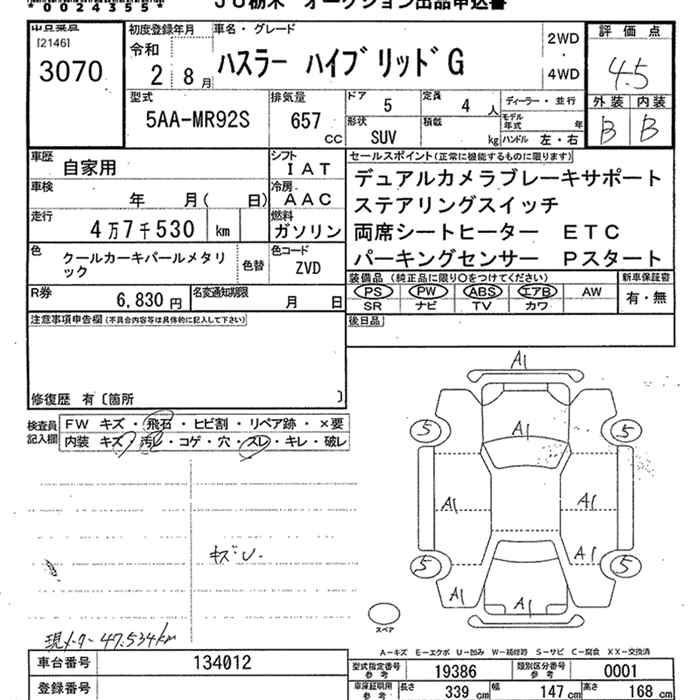 *0024355*
JU栃木 オークション出品申込書
[2146]
3070
初度登録年月
令和
2 8月
車名・グレード
ハスラー ハイブリッドG
2WD
・
4WD
評価点
4.5
外装 内装
B B
型式
5AA-MR92S
排気量
657
CC
ドア 5
定員 4 人
形状
SUV
積載
kg
ディーラー・並行
モデル年式 年
ハンドル 左・右
車歴 自家用
シフト
IAT
車検 年 月( 日)
冷房
AAC
走行
4万7千530 km
燃料
ガソリン
色
クールカーキパールメタリック
色替
色コード
ZVD
R券 6,830円
名変通知期限
月 日
セールスポイント(正常に機能するものに限ります)
デュアルカメラブレーキサポート
ステアリングスイッチ
両席シートヒーター ETC
パーキングセンサー Pスタート
装備品 (純正品に限り○をつけてください)
新車保証書
PS PW ABS エアB AW
有・無
SR ナビ TV カワ
注意事項申告欄(不具合内容等は具体的に記入して下さい)
後日品
修復歴 有〔箇所 〕
検査員記入欄
FW キズ・飛石・ヒビ割・リペア跡・×要
内装 キズ・汚レ・コゲ・穴・スレ・キレ・破レ
A1
5 A1 5
A1 A1
5 A1 5
A1 A1
キズU.
現メーター47.534km
スペア
A-キズ E-エクボ U-凹み W-補修跡 S-サビ C-腐食 XX-交換済
車台番号 134012
登録番号
型式指定番号 参考 19386
類別区分番号 参考 0001
車庫証明用 参考
長さ 339 cm 幅 147 cm 高さ 168 cm